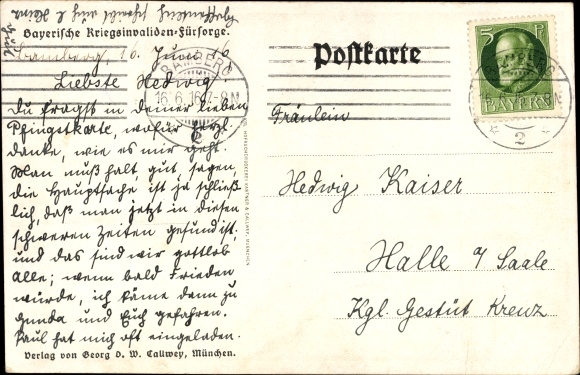 Hoffentlich schreibt auch l. Heinz
Bayerische Kriegsinvaliden-Fürsorge.
Bamberg, 16. Juni 16.
Liebste Hedwig
Du fragst in deiner lieben
Pfingstkarte, wofür herzl.
danke, wie es mir geht.
Man muß halt gut sagen,
die Hauptsache ist ja schließ
lich, daß man jetzt in diesen
schweren Zeiten gesund ist,
und das sind wir gottlob
alle; wenn bald Frieden
würde, ich käme dann zu
Gunda und Euch gefahren.
Paul hat mich oft eingeladen.
Verlag von Georg D. W. Callwey, München.
Postkarte
5 P
BAYERN
BAMBERG
16.6.16.7-8 N
2
Fräulein
Hedwig Kaiser
Halle a/ Saale
Kgl. Gestüt Kreuz